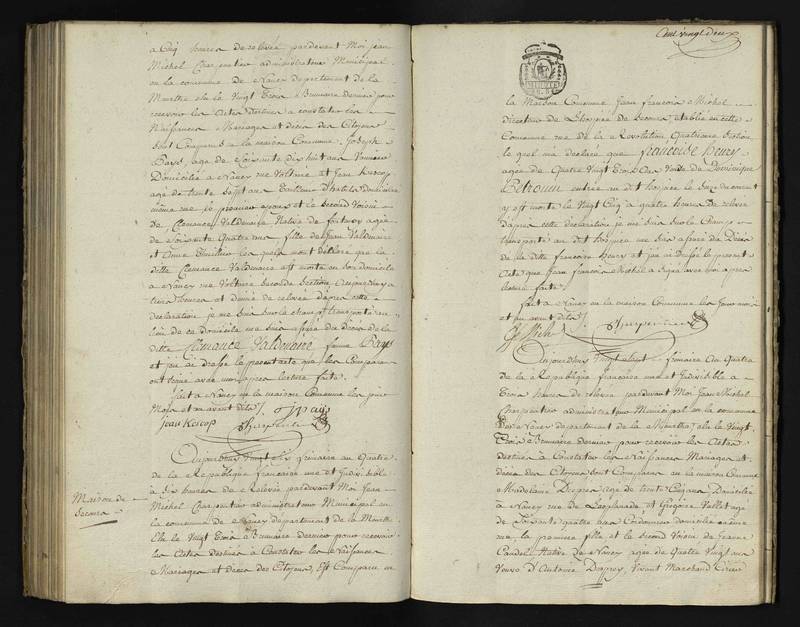 a Cinq heures de relevée pardevant Moi Jean
Michel Charpentier administrateur Municipal
en la commune de Nancy departement de la
Meurthe elu le Vingt Trois Brumaire dernier pour
recevoir les Actes destinés a constater les
Naissances Mariages et décès des Citoyens
sont Comparus en la maison Commune Joseph
Pays, age de Soixante dix huit ans
Domicilié a Nancy rue Voltaire et Jean
age de trente Sept ans domicilié
même rue le premier époux et le Second Voisin
de Clemance Valdenaire Native de agée
de Soixante Quatre ans fille de Jean Valdenaire
et Anne les quels mont déclaré que la
ditte Clemance Valdenaire est morte en son domicile
a Nancy rue Voltaire Seconde Section Aujourdhuy a
trois heures et demie de relevée dapres cette
declaration je me suis sur le champ transporté au
lieu de ce Domicile me suis assuré du Décès de la
ditte Clemance Valdenaire femme Pays
et jai de Dressé le present acte que les Comparans
ont signé avec moi apres lecture faite
fait a Nancy en la maison Commune les jour
Mois et an avant dits J pays
Jean Charpentier
Maison de
Secours
Aujourdhuy Vingt Six frimaire an Quatre
de la République française une et Indivisible
a Six heures de Relevée pardevant Moi Jean
Michel Charpentier administrateur Municipal en
la commune de Nancy departement de la Meurthe
Elu le Vingt Trois Brumaire dernier pour recevoir
les Actes destinés a Constater les Naissances
Mariages et décès des Citoyens, Est Comparu en
Cent vingt deux
la Maison Commune Jean francois Michel
directeur de L'hospice de Secours etablie en cette
Commune rue de la Révolution Quatrieme Section
le quel ma déclaré que françoise henry
agée de Quatre Vingt Trois ans Veuve de Dominique
entrée au dit hospice le
y est morte le Vingt Cinq a quatre heures de relevée
dapres cette déclaration je me suis sur le Champ
transporté au dit hospice me suis assuré du Décès
de la ditte francoise henry et jai dressé le present
Acte que Jean francois Michel a Signé avec moi apres
lecture faite
fait a Nancy en la maison Commune les jour mois
et an avant dits
Charpentier
Aujourdhuy Vingt Sept frimaire an Quatre
de la République française une et Indivisible a
Trois heures de relevée pardevant Moi Jean Michel
Charpentier administrateur Municipal en la commune
de Nancy departement de la Meurthe elu le Vingt
Trois Brumaire dernier pour recevoir les Actes
destinés a Constater les Naissances Mariages et
décès des Citoyens sont Comparus en la maison Commune
Madelaine agée de trente Cinq ans Domiciliée
a Nancy rue de Lesplanade et Gregoire Vallet age
de Soixante quatre ans Cordonnier domicilié même
rue, la premiere fille et le Second Voisin de
Native de Nancy agée de Quatre Vingt ans
Veuve d'Antoine Vivant Marchand Cirier